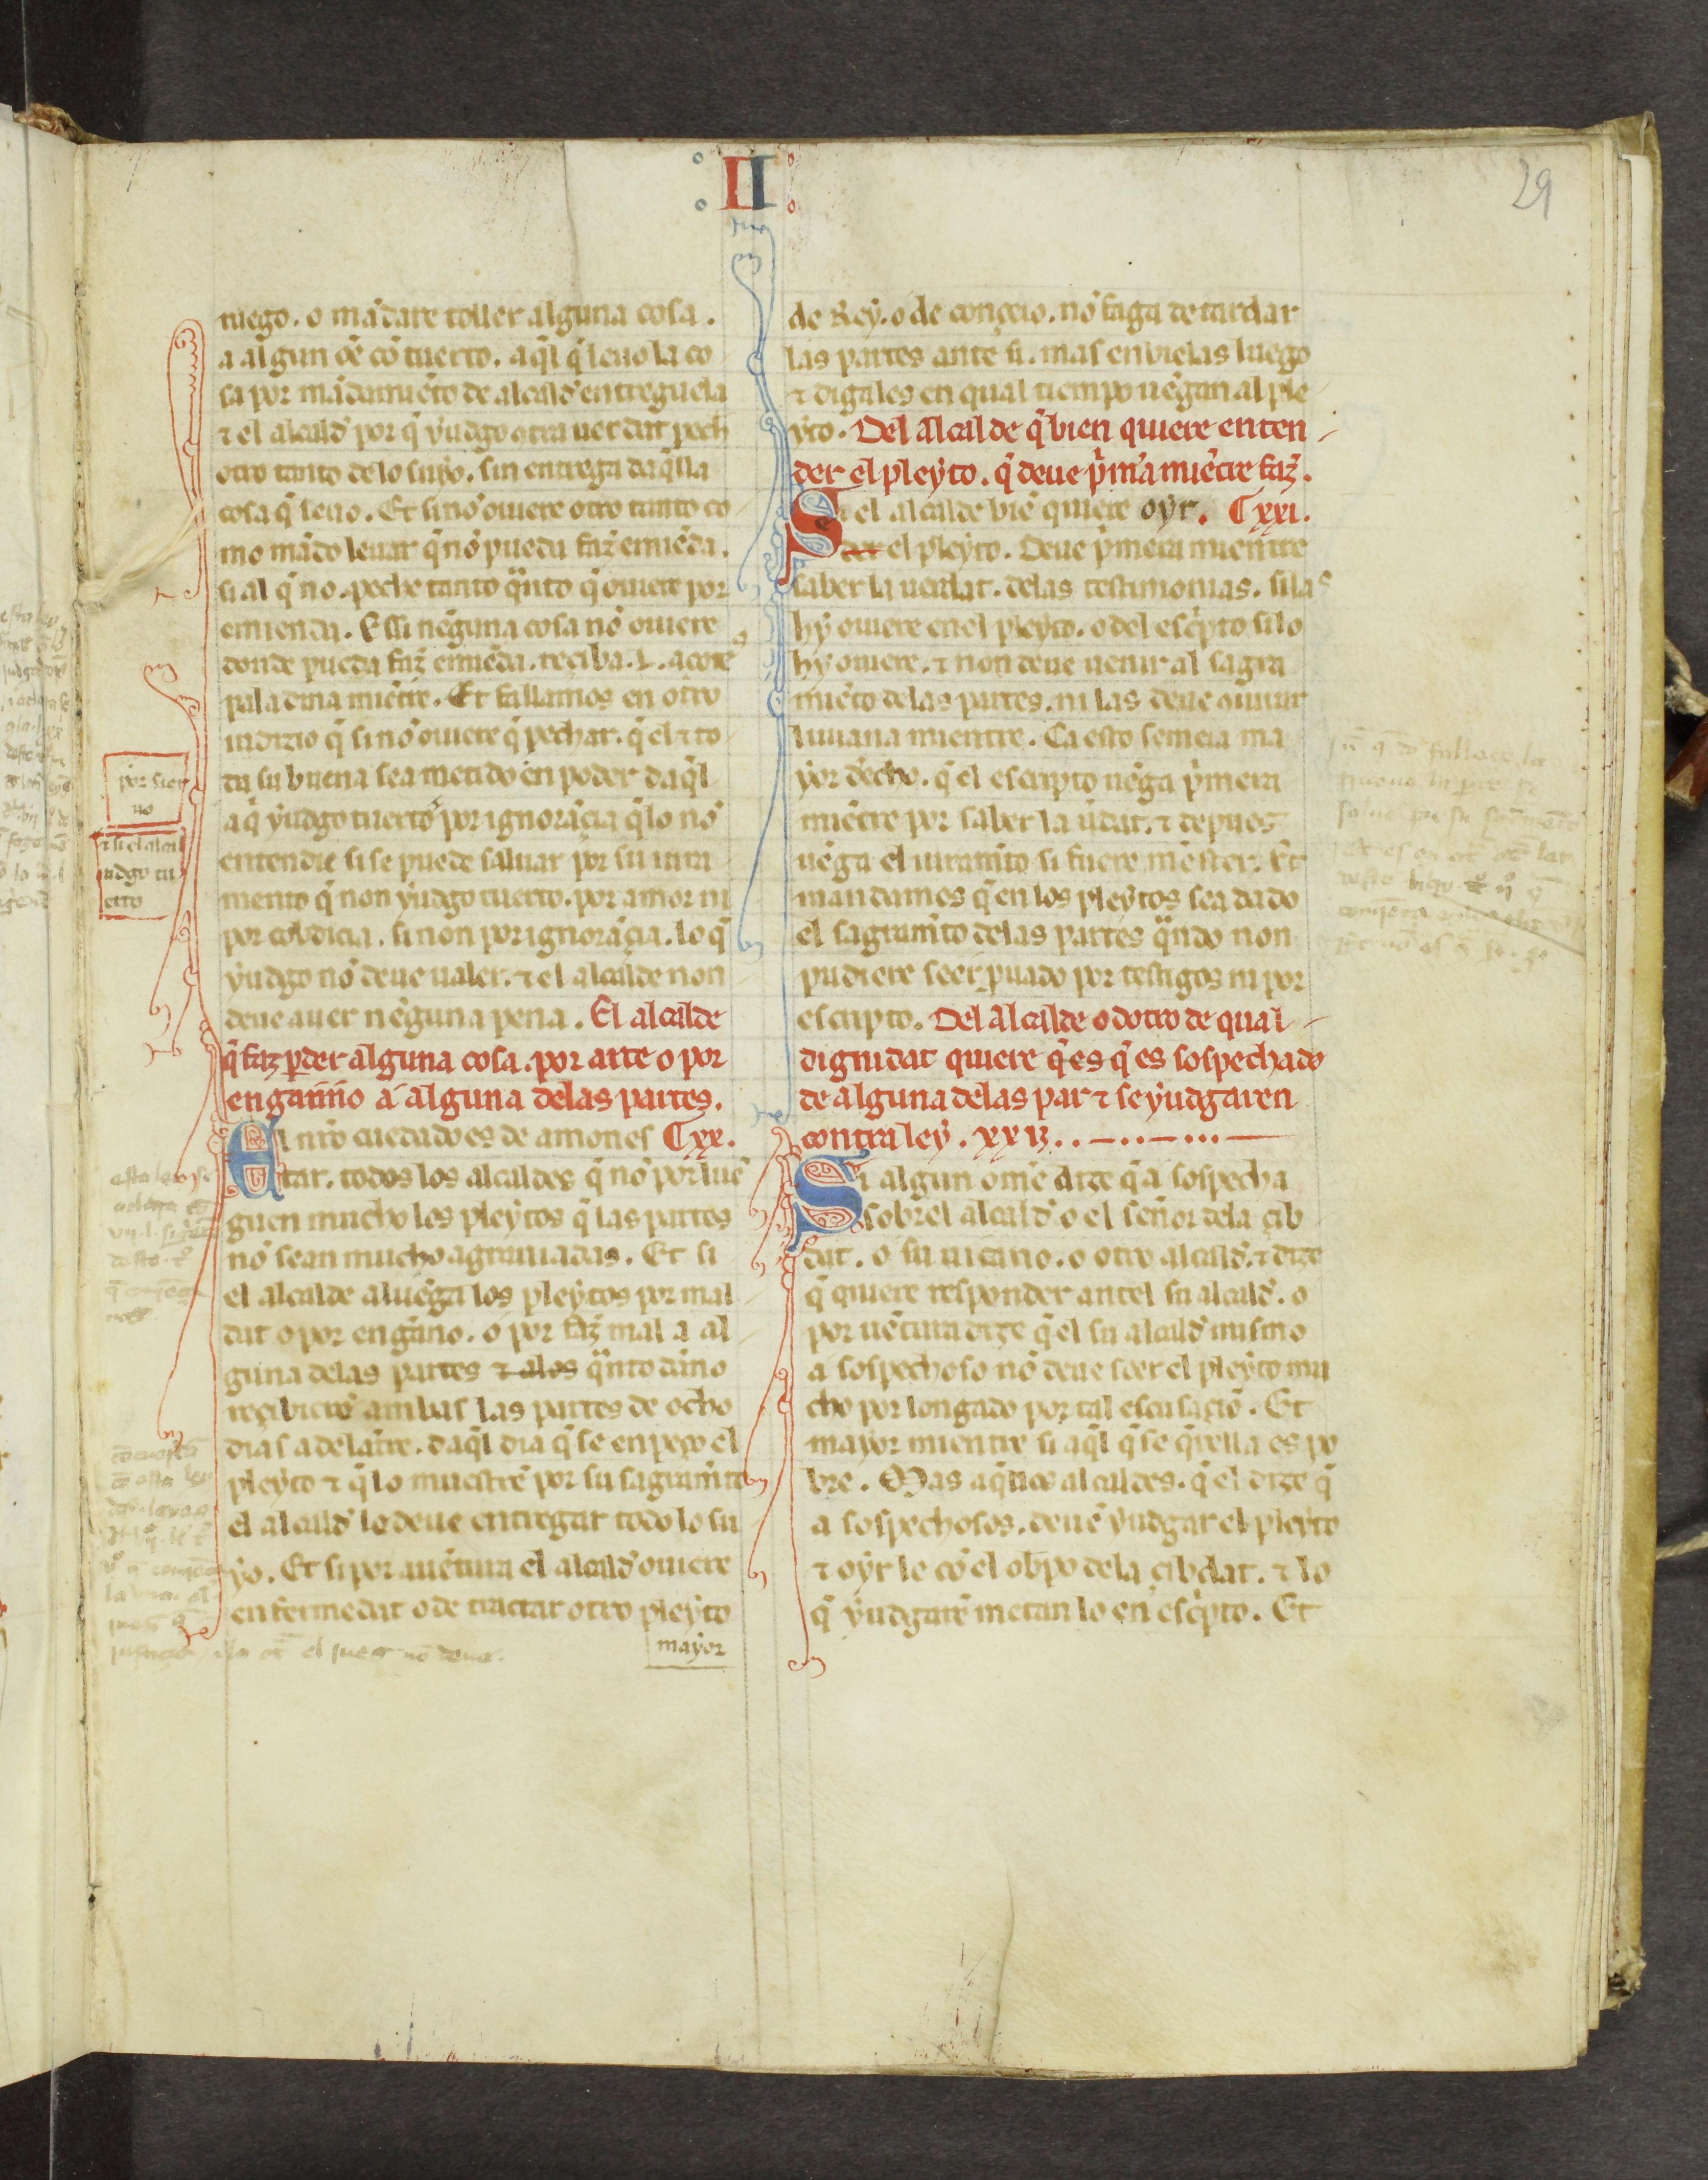 II
29
ruego. o mãdare toller alguna cosa.
a algun oẽ cõ tuerto. aq̃l q̃ leuo la co
sa por mãdamiẽto de alcald' entreguela
⁊ el alcald' por q̃ yudgo otra uerdat pech
otro tanto de lo suyo. sin entrega daq̃lla
cosa q̃ leuo. Et si nõ ouiere otro tanto co
mo mãdo leuar q̃ nõ pueda faz̃ emiẽda.
si al q̃ no. peche tanto q̃nto q̃ ouiere por
emienda. E ssi nẽguna cosa nõ ouiere
donde pueda faz̃ emiẽda. reçiba. L. açotes
paladina miẽtre. Et fallamos en otro
iudizio q̃ si nõ ouiere q̃ pechar. q̃ el ⁊ to
da su buena sea metido en poder daq̃l
por sier
uo
a q̃ yudgo tuerto por ignorãcia q̃ lo nõ
⁊ si el alcal
udgo tu
erto
entendie si se puede saluar por su iura
mento q̃ non yudgo tuerto. por amor ni
por cobdicia. si non por ignorãçia. lo q̃
yudgo nõ deue ualer. ⁊ el alcalde non
deue auer nẽguna pena. El alcalde
q̃ faz p̱der alguna cosa. por arte o por
enganno a alguna delas partes.
A nr̃o cuedado es de amones Cxx.
tar. todos los alcaldes q̃ nõ porluẽ
guen mucho los pleytos q̃ las partes
nõ sean mucho agrauiadas. Et si
el alcalde aluẽga los pleytos por mal
dat o por engãno. o por faz̃ mal a al
guna delas partes ⁊ alos q̃nto dãno
reçibierõ ambas las partes de ocho
dias adelãtre. daq̃l dia q̃ se enpeço el
pleyto ⁊ q̃ lo muestrẽ por su sagramr̃to
el alcald' lo deue entregar todo lo su
yo. Et si por auẽtura el alcald' ouiere
enfermedat o de tractar otro pleyto
mayor
de Rey. o de conçeio. nõ faga de tardar
las partes ante si. mas enbielas luego
⁊ digales en qual tiempo uẽgan al ple
yto. Del Alcalde q̃ bien quiere enten
der el pleyto. q̃ deue p̃m̃a miẽtre faz̃.
Si el alcalde biẽ quiere oyr. Cxxi.
der el pleyto. Deue p̃mera mientre
saber la uerdat. delas testimonias. si las
hy ouiere en el pleyto. o del esc̃pto si lo
hy ouiere. ⁊ non deue uenir al sagra
miẽto delas partes. ni las deue oiuiar
liuiana mientre. Ca esto semeia ma
yor d'echo. q̃ el escripto uẽga p̃mera
miẽtre por saber la ũdat. ⁊ depues
uẽga el iuramr̃to si fuere mẽster. Et
mandamos q̃ en los pleytos sea dado
el sagramr̃to delas partes q̃ndo non
pudiere seer puado por testigos ni por
escripto. Del Alcalde o dotro de qual
dignidat quiere q̃ es q̃ es sospechado
de alguna delas par ⁊ se yudgaren
contra ley. xxij.
Si algun omẽ dize q̃ a sospecha
sobrel alcald' o el señor dela çib
dat. o su uicario. o otro alcald'. ⁊ dize
q̃ quiere responder antel su alcald'. o
por uẽtura dize q̃ el su alcald' mismo
a sospechoso nõ deue seer el pleyto mu
cho por longado por tal escusaçiõ. Et
mayor mientre si aq̃l q̃ se q̃rella es po
bre. Mas aq̃llos alcaldes. q̃ el dize q̃
a sospechosos. deuẽ yudgar el pleyto
⁊ oyr le cõ el obp̃o dela çibdat. ⁊ lo
q̃ yudgarẽ metan lo en esc̃pto. Et